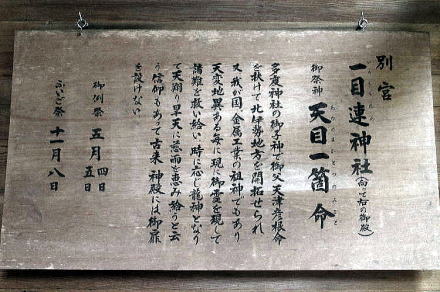 別宮
一目連神社(向って右の御殿)
御祭神 天目一箇命
多度神社の御子神で御父天津彦根命
を扶けて北伊勢地方を開拓せられ
又我が国、金属工業の祖神でもあり
天変地異ある毎に現に御霊を現して
諸難を救い給い、時に応じ龍神となり
て天翔り旱天に慈雨を恵み給うと云
う信仰もあって古来神殿には御扉
を設けない
御例祭 五月 四日 五日
ふいご祭 十一月八日